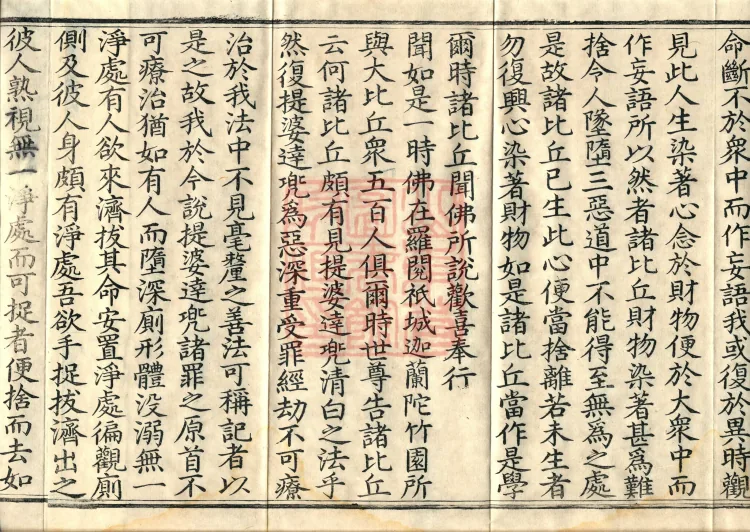 命斷不於衆中而作妄語我或復於異時觀
見此人生染著心念於財物便於大衆中而
作妄語所以然者諸比丘財物染著甚爲難
捨令人墜墮三惡道中不能得至無爲之處
是故諸比丘已生此心便當捨離若未生者
勿復興心染著財物如是諸比丘當作是學
爾時諸比丘聞佛所說歡喜奉行
聞如是一時佛在羅閱祇城迦蘭陀竹園所
與大比丘衆五百人俱爾時世尊告諸比丘
云何諸比丘頗有見提婆達兜清白之法乎
然復提婆達兜爲惡深重受罪經劫不可療
治於我法中不見毫釐之善法可稱記者以
是之故我於今說提婆達兜諸罪之原首不
可療治猶如有人而墮深廁形體没溺無一
淨處有人欲來濟拔其命安置淨處徧觀廁
側及彼人身頗有淨處吾欲手捉拔濟出之
彼人熟視無一淨處而可捉者便捨而去如